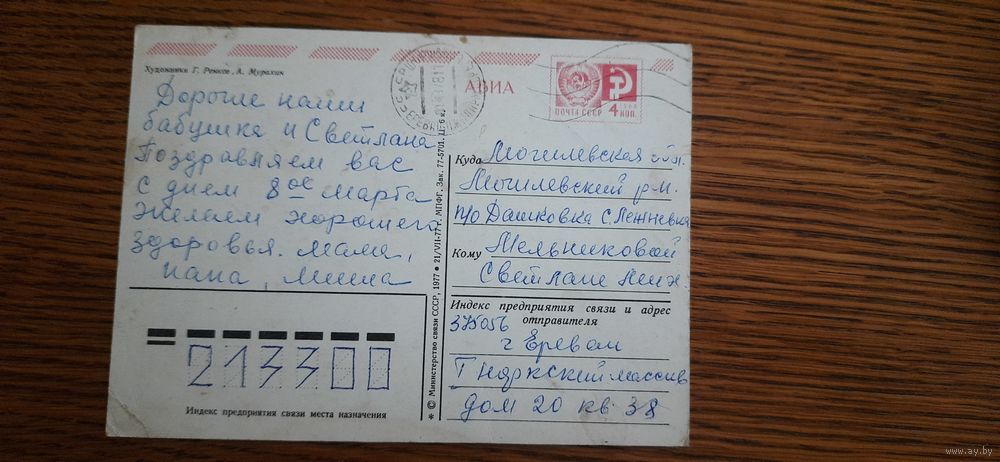 Художники Г. Ренков, А. Мурахин
АВИА
ПОЧТА СССР
4 КОП.
Дорогие наши
бабушка и Светлана
Поздравляем вас
с днем 8ое марта
желаем хорошего
здоровья. мама,
папа, Миша
Куда Могилевская обл.
Могилевский р-н.
п/о Дашковка с. Лежневка
Кому Мельниковой
Светлане
Индекс предприятия связи и адрес
отправителя
375056
г Ереван
массив
дом 20 кв 38
213300
Индекс предприятия связи места назначения
* © Министерство связи СССР, 1977 ● 21/VII-77 г. МПФГ. Зак. 77-5701. Ц. 6 к.
www.ay.by